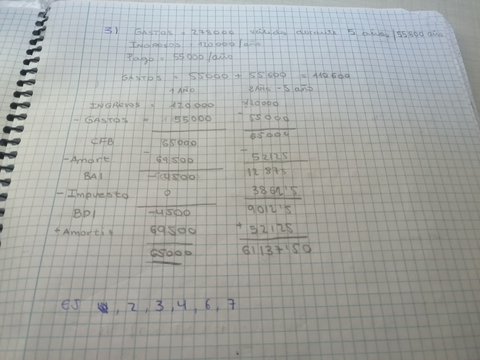 3) GASTOS = 278000 validos durante 5 años / 55600 año
INGRESOS 120000 / año
Pago = 55000 / año
GASTOS = 55000 + 55600 = 110600
1 AÑO 2 AÑO - 5 año
INGRESOS = 120.000 120000
- GASTOS - 55000 - 55000
CFB 65000 65000
- Amort - 69500 - 52125
BAI -4500 12875
- Impuesto 0 3862'5
BDI -4500 9012'5
+ Amortiz 69500 + 52125
65000 61137'50
EJ , 2, 3, 4, 6, 7